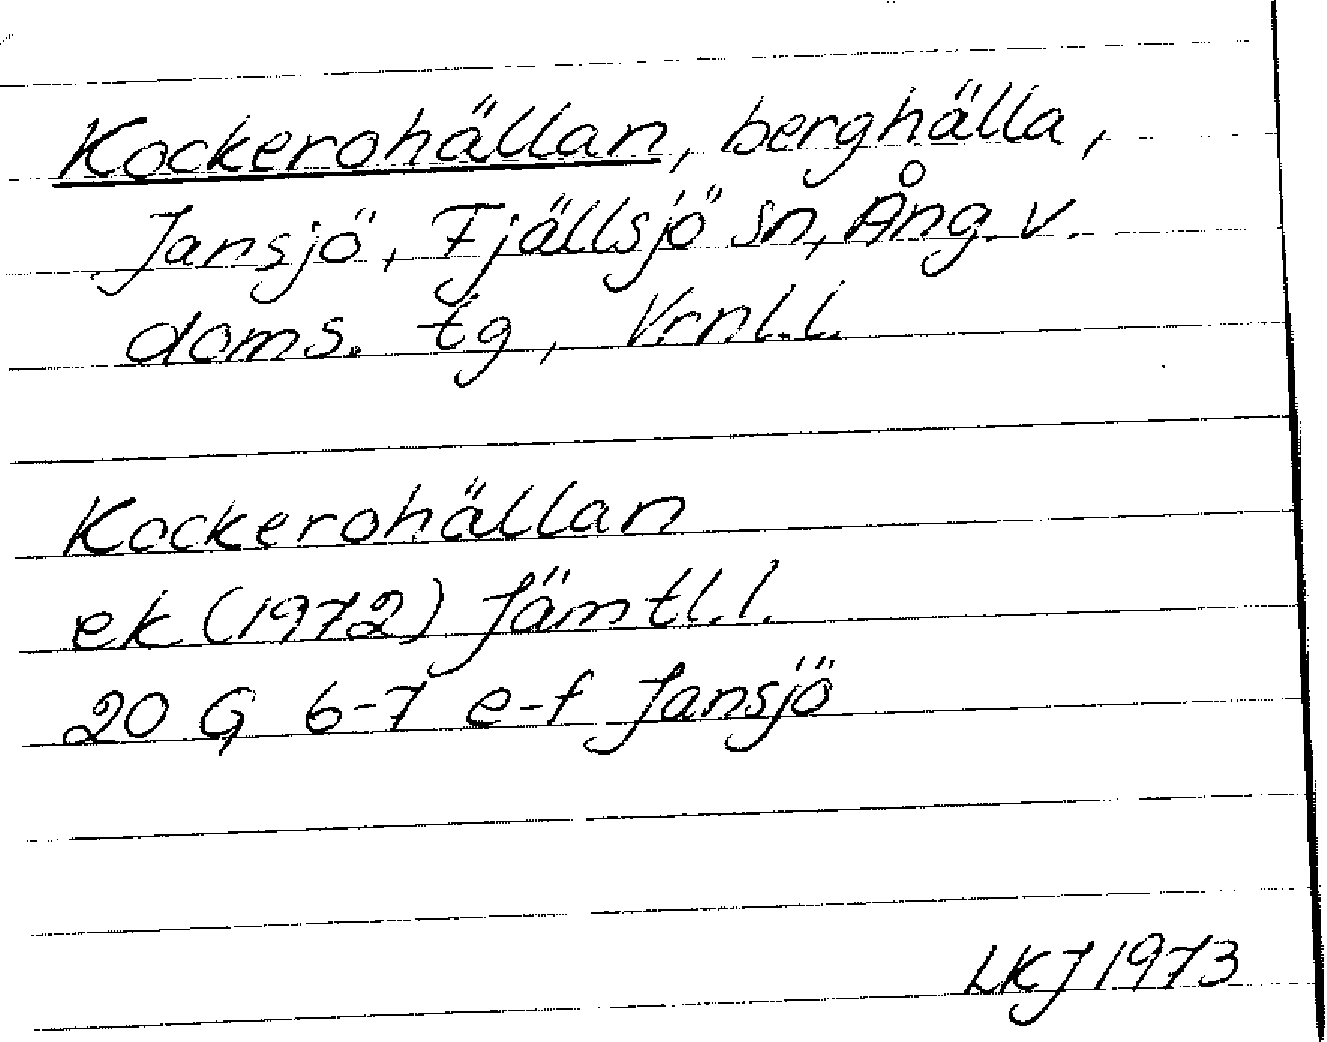 Kockerohällan, berghälla,
Jansjö, Fjällsjö sn, Ång. v.
doms. tg, Vrnl.l.
Kockerohällan
ek (1972) Jämtl.l.
20 G 6-7 e-f Jansjö
LKJ 1973